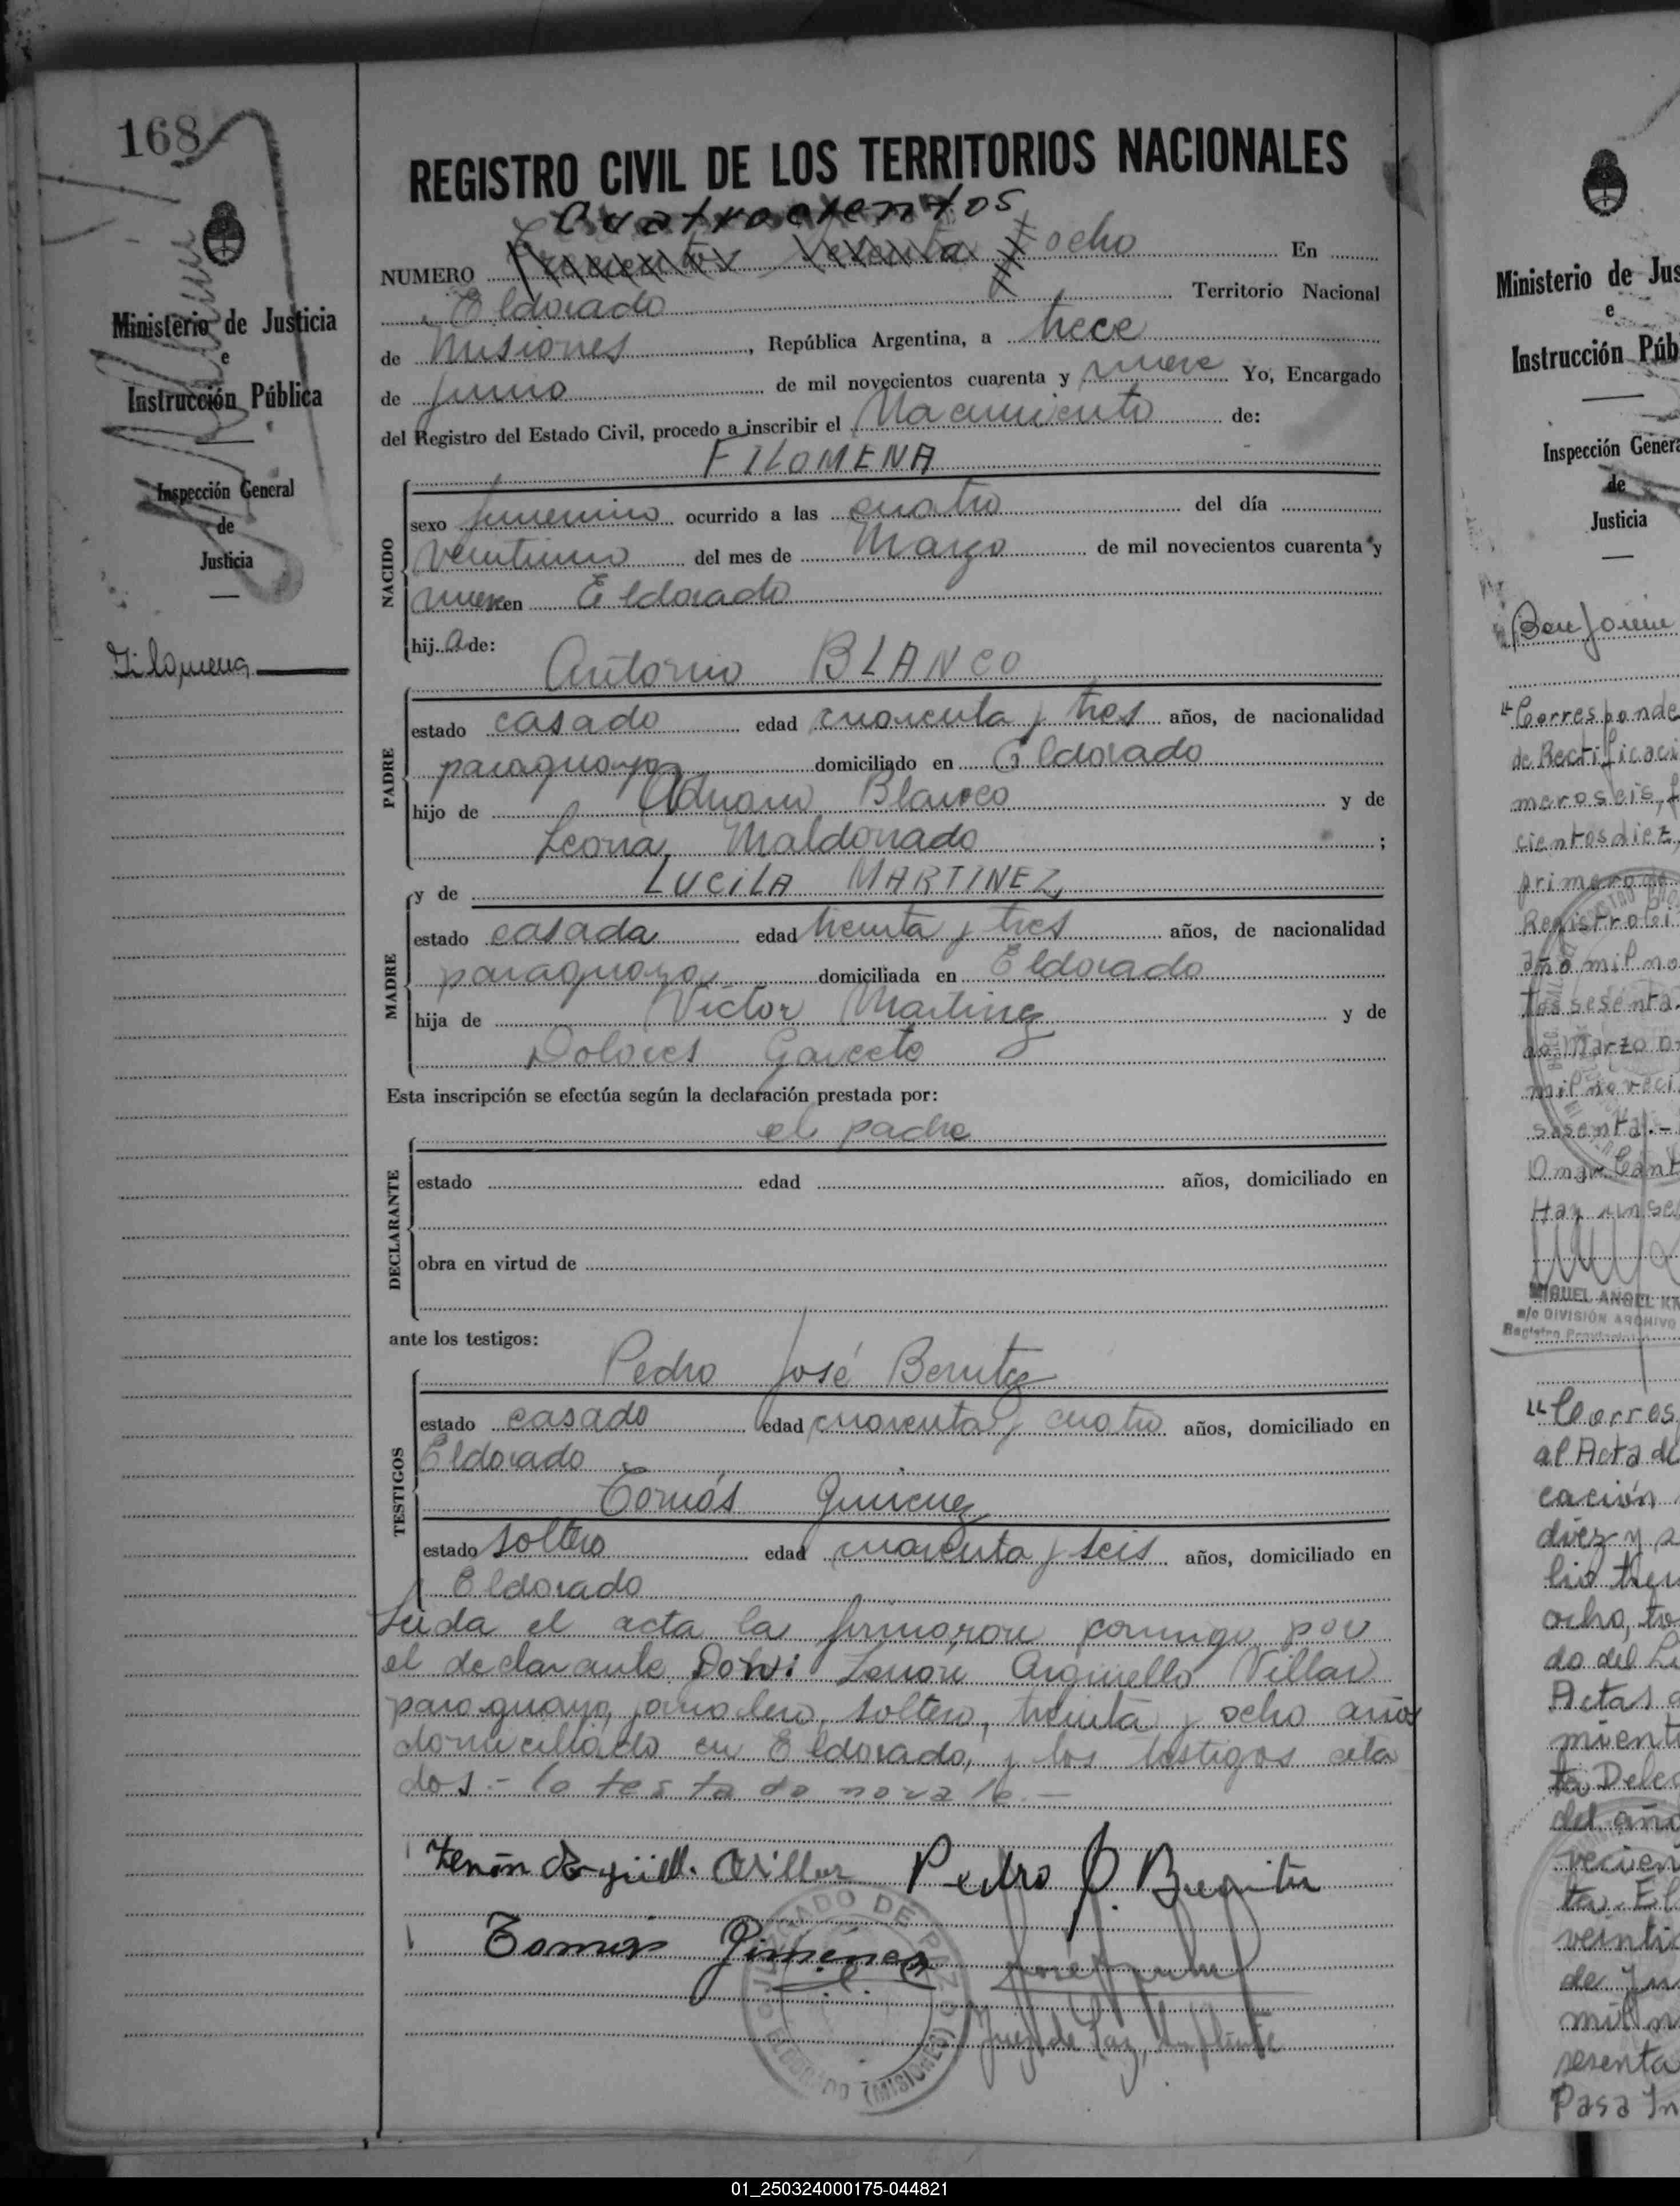 168
REGISTRO CIVIL DE LOS TERRITORIOS NACIONALES
Cuatrocientos
NUMERO Trescientos Sesenta y ocho En
Eldorado Territorio Nacional
de Misiones, República Argentina, a trece
de Junio de mil novecientos cuarenta y nueve Yo, Encargado
del Registro del Estado Civil, procedo a inscribir el Nacimiento de:
FILOMENA
Ministerio de Justicia
e
Instrucción Pública
Inspección General
de
Justicia
Filomena
NACIDO
sexo femenino ocurrido a las cuatro del día
veintiuno del mes de Marzo de mil novecientos cuarenta y
nueve en Eldorado
hij a de:
Antonio BLANCO
PADRE
estado casado edad cuarenta y tres años, de nacionalidad
paraguaya domiciliado en Eldorado
hijo de Adriano Blanco y de
Leona Maldonado ;
y de LUCILA MARTINEZ,
MADRE
estado casada edad treinta y tres años, de nacionalidad
paraguaya domiciliada en Eldorado
hija de Victor Martinez y de
Dolores Garcete
Esta inscripción se efectúa según la declaración prestada por:
el padre
DECLARANTE
estado edad años, domiciliado en
obra en virtud de
ante los testigos:
TESTIGOS
Pedro José Benitez
estado casado edad cuarenta y cuatro años, domiciliado en
Eldorado
Tomás Gimenez
estado soltero edad cuarenta y seis años, domiciliado en
Eldorado
Leida el acta la firmaron conmigo por
el declarante Don: Zenon Arguello Villar
paraguayo, jornalero, soltero, treinta y ocho años
domiciliado en Eldorado, y los testigos cita
dos.- lo testado no vale.-
Zenón Argüell. Villar Pedro J. Benitez
Tomas Gimenez
JUZGADO DE PAZ
ELDORADO (MISIONES)
Juez de Paz, Suplente
Ministerio de Jus
e
Instrucción Púb
Inspección Genera
de
Justicia
"Corresponde
de Rectificaci
mero seis, f
cientos diez,
primero de
Registro Ci
año mil no
tos sesenta.
do. Marzo
mil noveci
sesenta.-
Omar Cant
Hay un sel
MIGUEL ANGEL KR
a/c DIVISIÓN ARCHIVO
"Corres
al Acta de
cación
diez y a
lio tres
ocho, to
do del Li
Actas d
mient
ta Dele
del año
vecien
ta. El
veinti
de Ju
mil n
sesenta
Pasa In
01_250324000175-044821